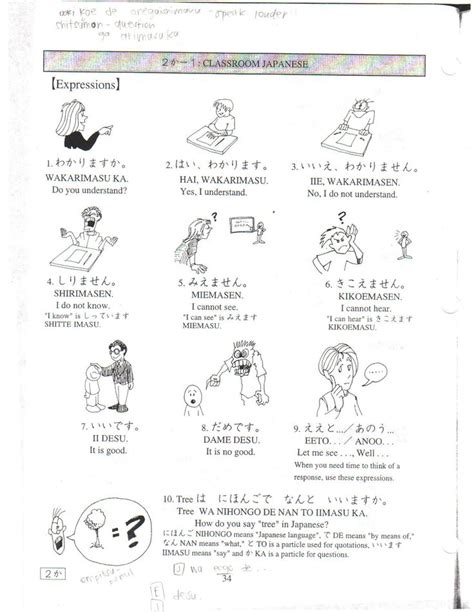 koe de onegaishimasu - speak louder!!
shitsumon - question
ga arimasu ka
2か－1 : CLASSROOM JAPANESE
【Expressions】
1. わかりますか。
WAKARIMASU KA.
Do you understand?
2. はい、わかります。
HAI, WAKARIMASU.
Yes, I understand.
3. いいえ、わかりません。
IIE, WAKARIMASEN.
No, I do not understand.
4. しりません。
SHIRIMASEN.
I do not know.
"I know" is しっています
SHITTE IMASU.
?
5. みえません。
MIEMASEN.
I cannot see.
"I can see" is みえます
MIEMASU.
?
6. きこえません。
KIKOEMASEN.
I cannot hear.
"I can hear" is きこえます
KIKOEMASU.
7. いいです。
II DESU.
It is good.
8. だめです。
DAME DESU.
It is no good.
9. ええと…/ あのう…
EETO… / ANOO…
Let me see …, Well …
When you need to think of a
response, use these expressions.
10. Tree は にほんごで なんと いいますか。
Tree WA NIHONGO DE NAN TO IIMASU KA.
How do you say "tree" in Japanese?
にほんご NIHONGO means "Japanese language", で DE means "by means of,"
なん NAN means "what," と TO is a particle used for quotations, いいます
IIMASU means "say" and か KA is a particle for questions.
= ?
2か
34
J wa
E
desu.